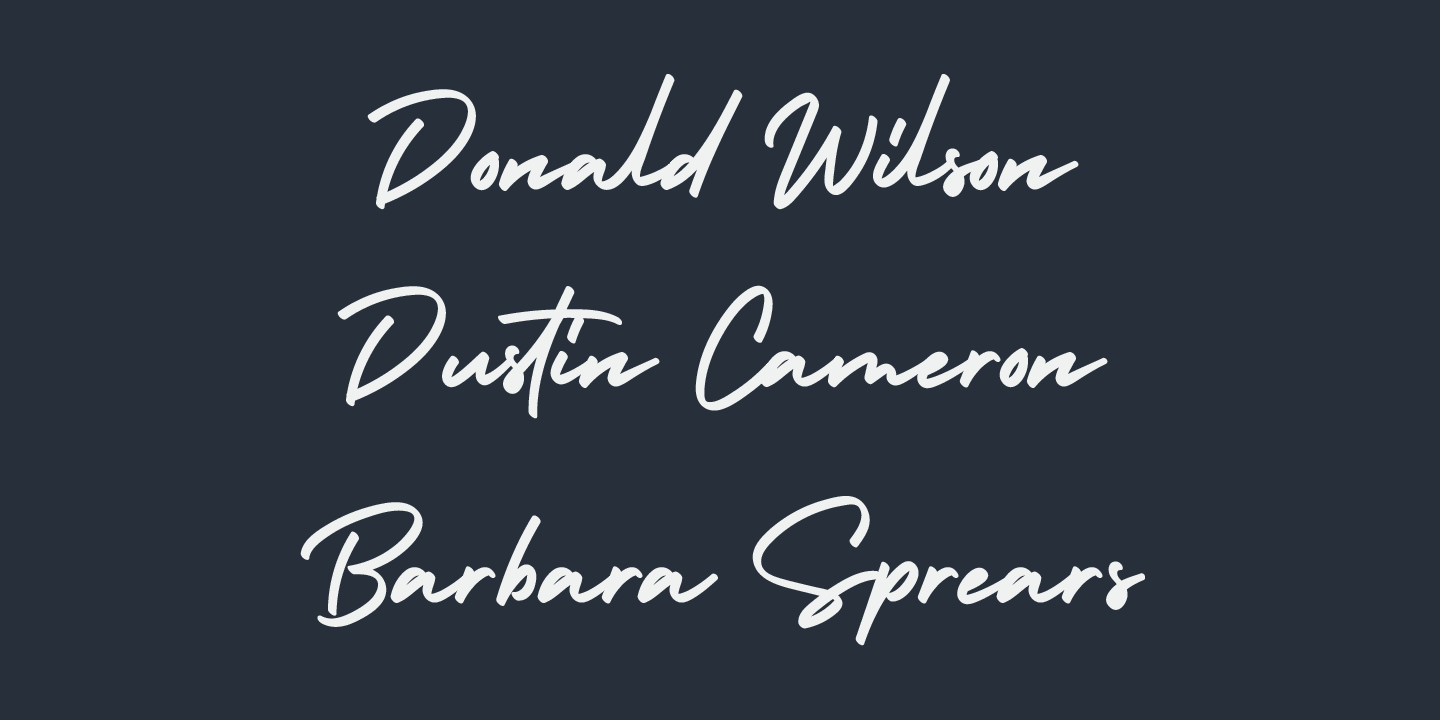 Donald Wilson
Dustin Cameron
Barbara Sprears